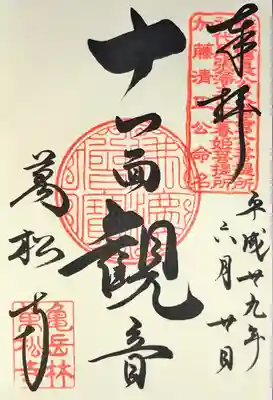 奉拝
加藤清正公命名
平成廿九年
六月廿日
十一面觀音
萬松寺
龜岳林
萬松寺